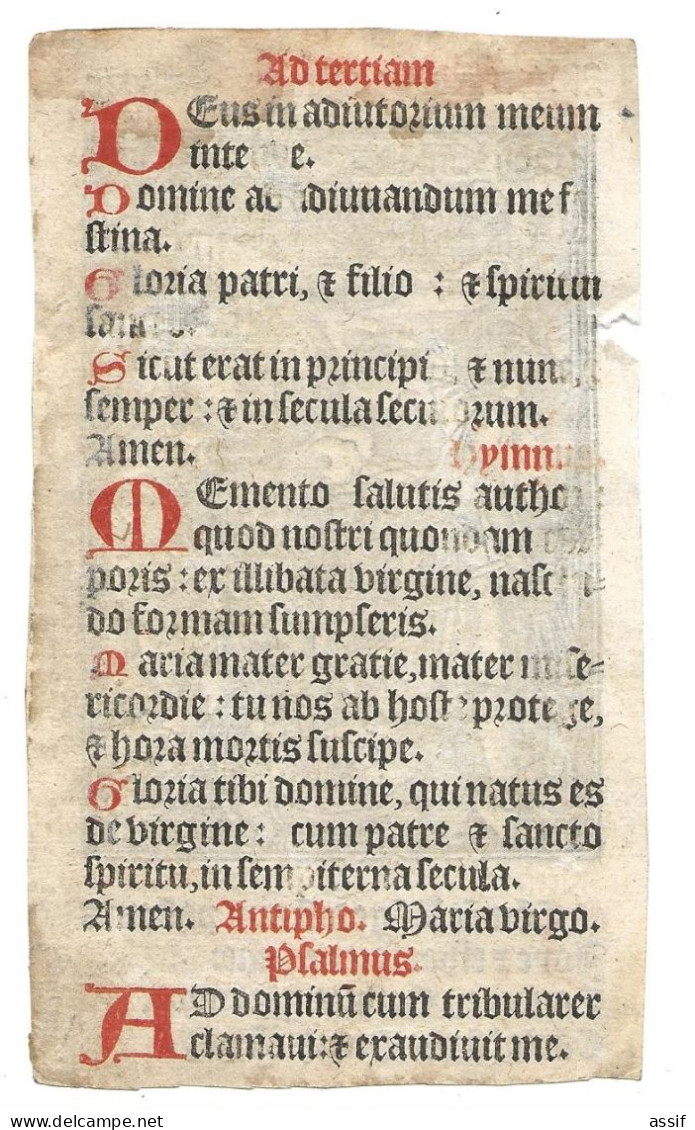 Ad tertiam
DEus in adiutorium meum
inte e.
Domine ad adiuuandum me fe
stina.
Gloria patri, & filio : & spiritui
sancto.
Sicut erat in principio, & nunc,
semper : & in secula seculorum.
Amen. Hymnus.
MEmento salutis author:
quod nostri quondam cor
poris : ex illibata virgine, nascen-
do formam sumpseris.
Maria mater gratie, mater mise-
ricordie : tu nos ab hoste protege,
& hora mortis suscipe.
Gloria tibi domine, qui natus es
de virgine : cum patre & sancto
spiritu, in sempiterna secula.
Amen. Antipho. Maria virgo.
Psalmus.
AD dominū cum tribularer
clamaui: & exaudiuit me.
assif